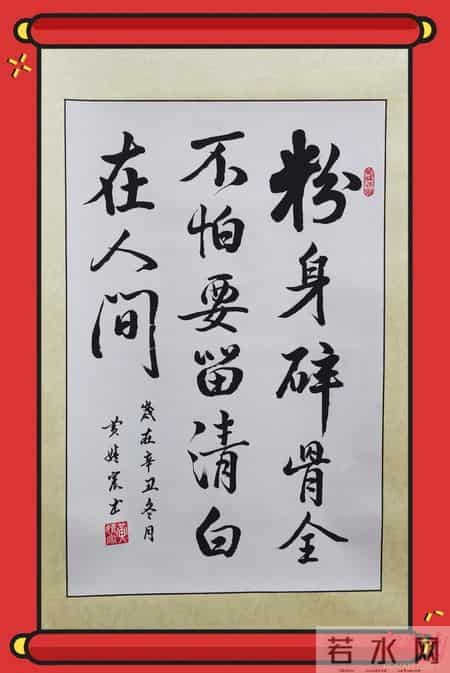 粉身碎骨全
不怕要留清白
在人间
岁在辛丑冬月
若水网